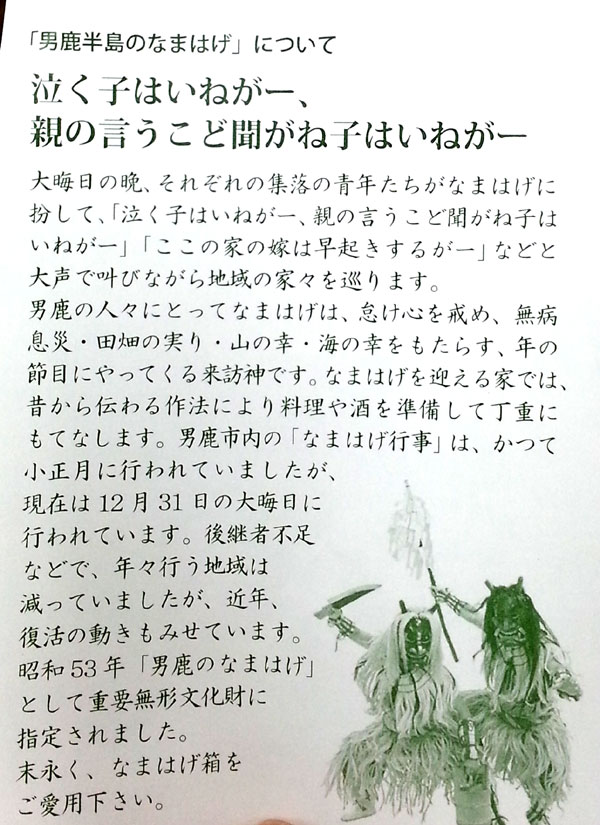 「男鹿半島のなまはげ」について
泣く子はいねがー、
親の言うこど聞がね子はいねがー
大晦日の晩、それぞれの集落の青年たちがなまはげに
扮して、「泣く子はいねがー、親の言うこど聞がね子は
いねがー」「ここの家の嫁は早起きするがー」などと
大声で叫びながら地域の家々を巡ります。
男鹿の人々にとってなまはげは、怠け心を戒め、無病
息災・田畑の実り・山の幸・海の幸をもたらす、年の
節目にやってくる来訪神です。なまはげを迎える家では、
昔から伝わる作法により料理や酒を準備して丁重に
もてなします。男鹿市内の「なまはげ行事」は、かつて
小正月に行われていましたが、
現在は12月31日の大晦日に
行われています。後継者不足
などで、年々行う地域は
減っていましたが、近年、
復活の動きもみせています。
昭和53年「男鹿のなまはげ」
として重要無形文化財に
指定されました。
末永く、なまはげ箱を
ご愛用下さい。